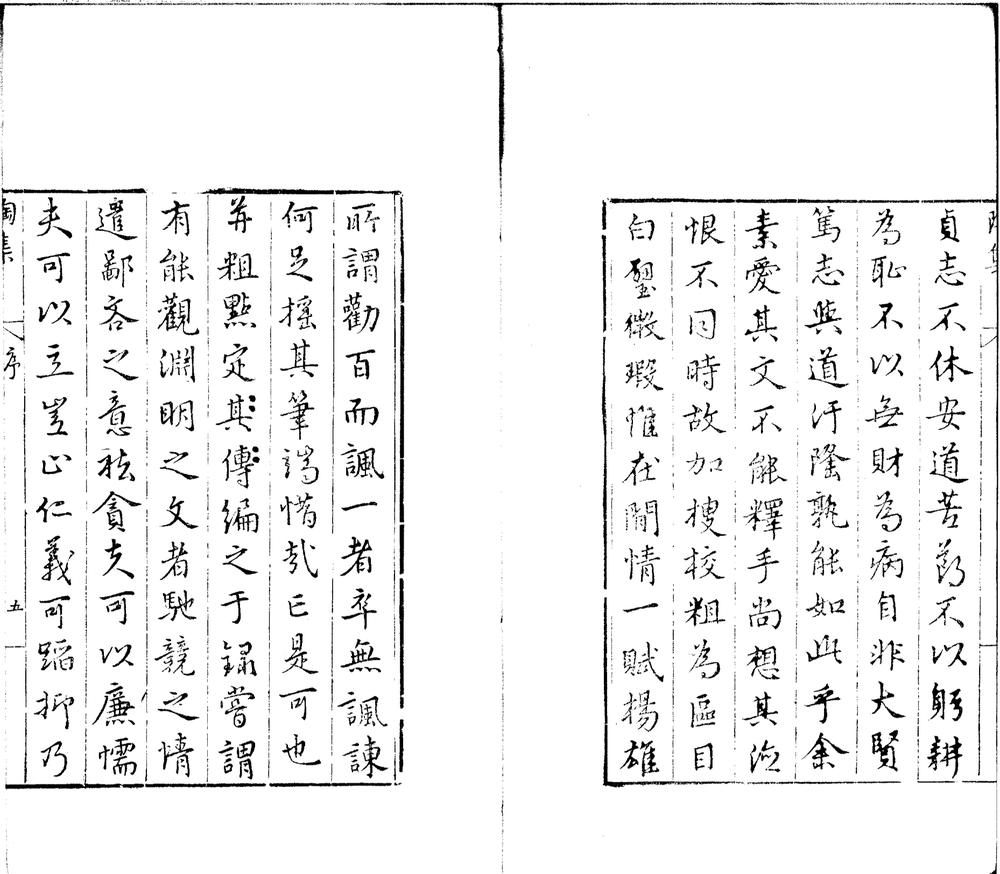 貞志不休安道苦節不以躬耕
為恥不以無財為病自非大賢
篤志與道汙隆孰能如此乎余
素愛其文不能釋手尚想其德
恨不同時故加搜校粗為區目
白璧微瑕惟在閒情一賦揚雄
所謂勸百而諷一者卒無諷諫
何足搖其筆端惜哉亡是可也
并粗點定其傳編之于錄嘗謂
有能觀淵明之文者馳競之情
遣鄙吝之意祛貪夫可以廉懦
夫可以立豈止仁義可蹈抑乃
陶集 序 五